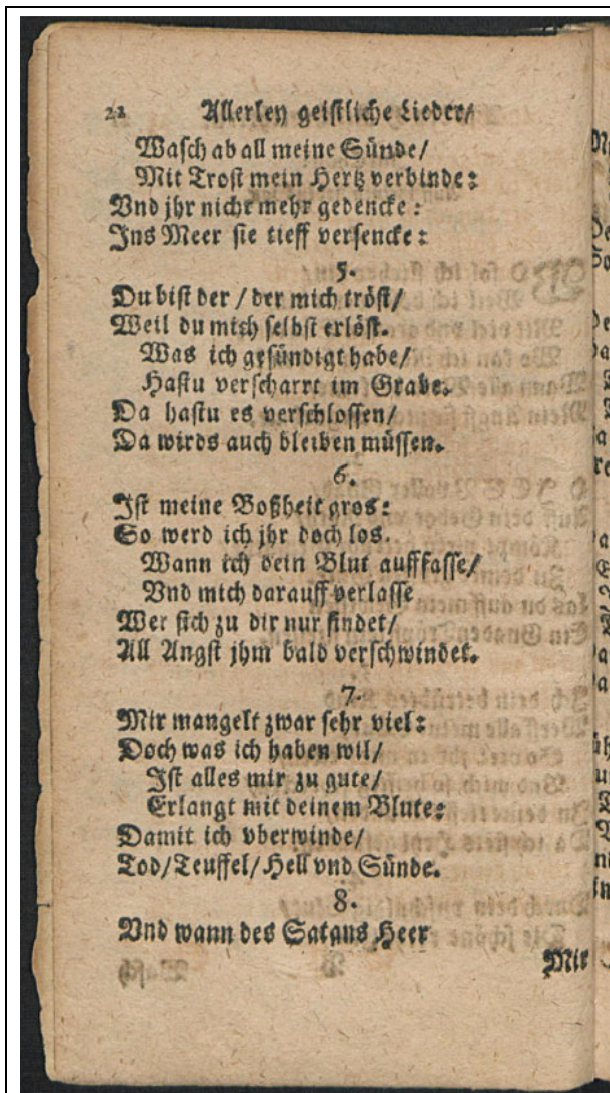 22 Allerley geistliche Lieder/
Wasch ab all meine Sünde/
Mit Trost mein Hertz verbinde:
Vnd jhr nicht mehr gedencke:
Ins Meer sie tieff versencke:
5.
Du bist der / der mich tröst/
Weil du mich selbst erlöst.
Was ich gesündigt habe/
Hastu verscharrt im Grabe.
Da hastu es verschlossen/
Da wirds auch bleiben müssen.
6.
Ist meine Boßheit gros:
So werd ich jhr doch los.
Wann ich dein Blut auffasse/
Vnd mich darauff verlasse
Wer sich zu dir nur findet/
All Angst jhm bald verschwindet.
7.
Mir mangelt zwar sehr viel:
Doch was ich haben wil/
Ist alles mir zu gute/
Erlangt mit deinem Blute:
Damit ich vberwinde/
Tod/Teuffel/Hell vnd Sünde.
8.
Vnd wann des Satans Heer
Mir